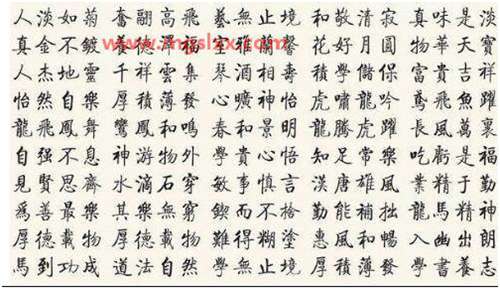 人淡如菊 奮翮高飛 藝無止境 和敬清寂 真味是淡
真金不鍍 室雅蘭馨 花好月圓 物華天寶
人杰地靈 千祥雲集 琴 積學儲 富貴吉祥
怡然自樂 厚積薄發 心曠神怡 虎嘯龍吟 鳶飛魚躍
龍飛鳳舞 鸞鳳和鳴 春和景明 龍騰虎躍 長風萬裏
自强不息 神游物外 學貴心悟 知足常樂 吃虧是福
見賢思齊 水滴石穿 敏事慎言 漢唐雄風 業精于勤
爲善最樂 其樂無窮 鍥而不捨 勤能補拙 龍馬精神
厚德載物 厚德載物 難得糊塗 惠風和暢 入幽出朗
馬到功成 道法自然 學無止境 厚積薄發 學書養志